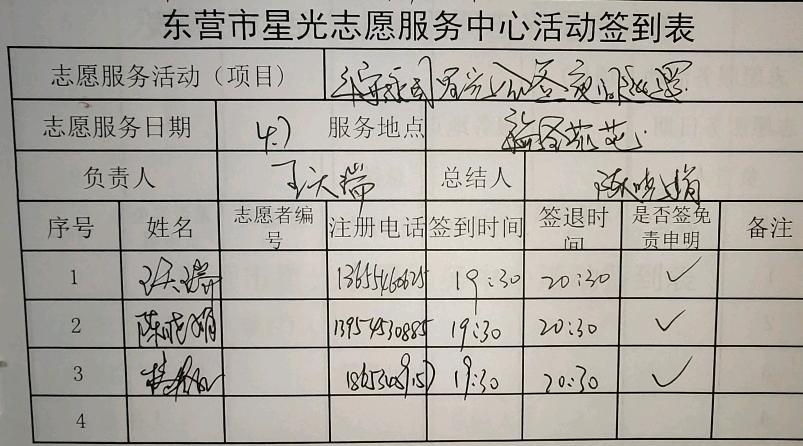 东营市星光志愿服务中心活动签到表
志愿服务活动（项目）
志愿服务日期 4.7 服务地点
负责人 王天瑞 总结人 陈晓娟
序号 姓名 志愿者编号 注册电话 签到时间 签退时间 是否签免责申明 备注
1 王天瑞 13655460625 19:30 20:30 ✓
2 陈晓娟 13954530885 19:30 20:30 ✓
3 19:30 20:30 ✓
4